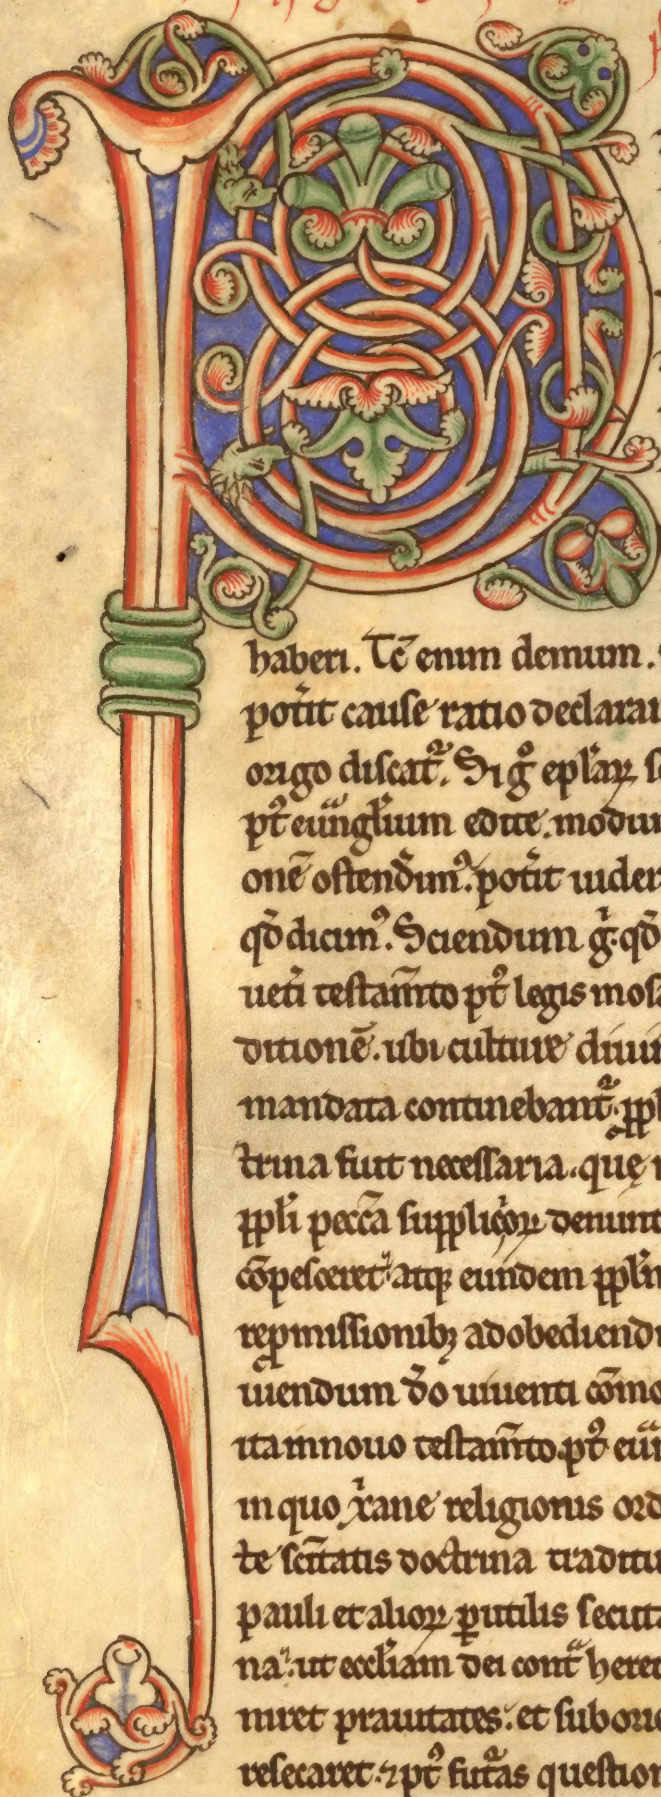 P
haberi. Tc̄ enim demum.
pot̄it cause ratio declarari
origo discat᷑. Si gͦ epl̄aꝝ
pt᷒ euu̅ngl̅ium edite. modum
onē ostendim᷒. pot̄it uider
qd̄ dicim᷒. Sciendum gͥ. qd̄
uet̄i testam̅to pt᷒ legis mosa
ditionē. ubi culture diuin
mandata continebant᷑. ppl
trina fuit necessaria. quę
ppl̄i pecc̄a suppliꝯoꝝ denunt
cōpesceret. atꝗ eundem ppl̄m
reꝓmissionibꝫ ad obediendu
uiendum do̅ uiuenti cōmo
ita in nouo testam̅to. pt᷒ euu̅
in quo xͥane religionis ord
te sc̅itatis doctrina traditu
pauli et alioꝝ ꝑutilis secuta
na. ut eccl̄iam dei cont᷑ heret
niret prauitates. et suborie
resecaret. ⁊ pt᷒ futᷓas question